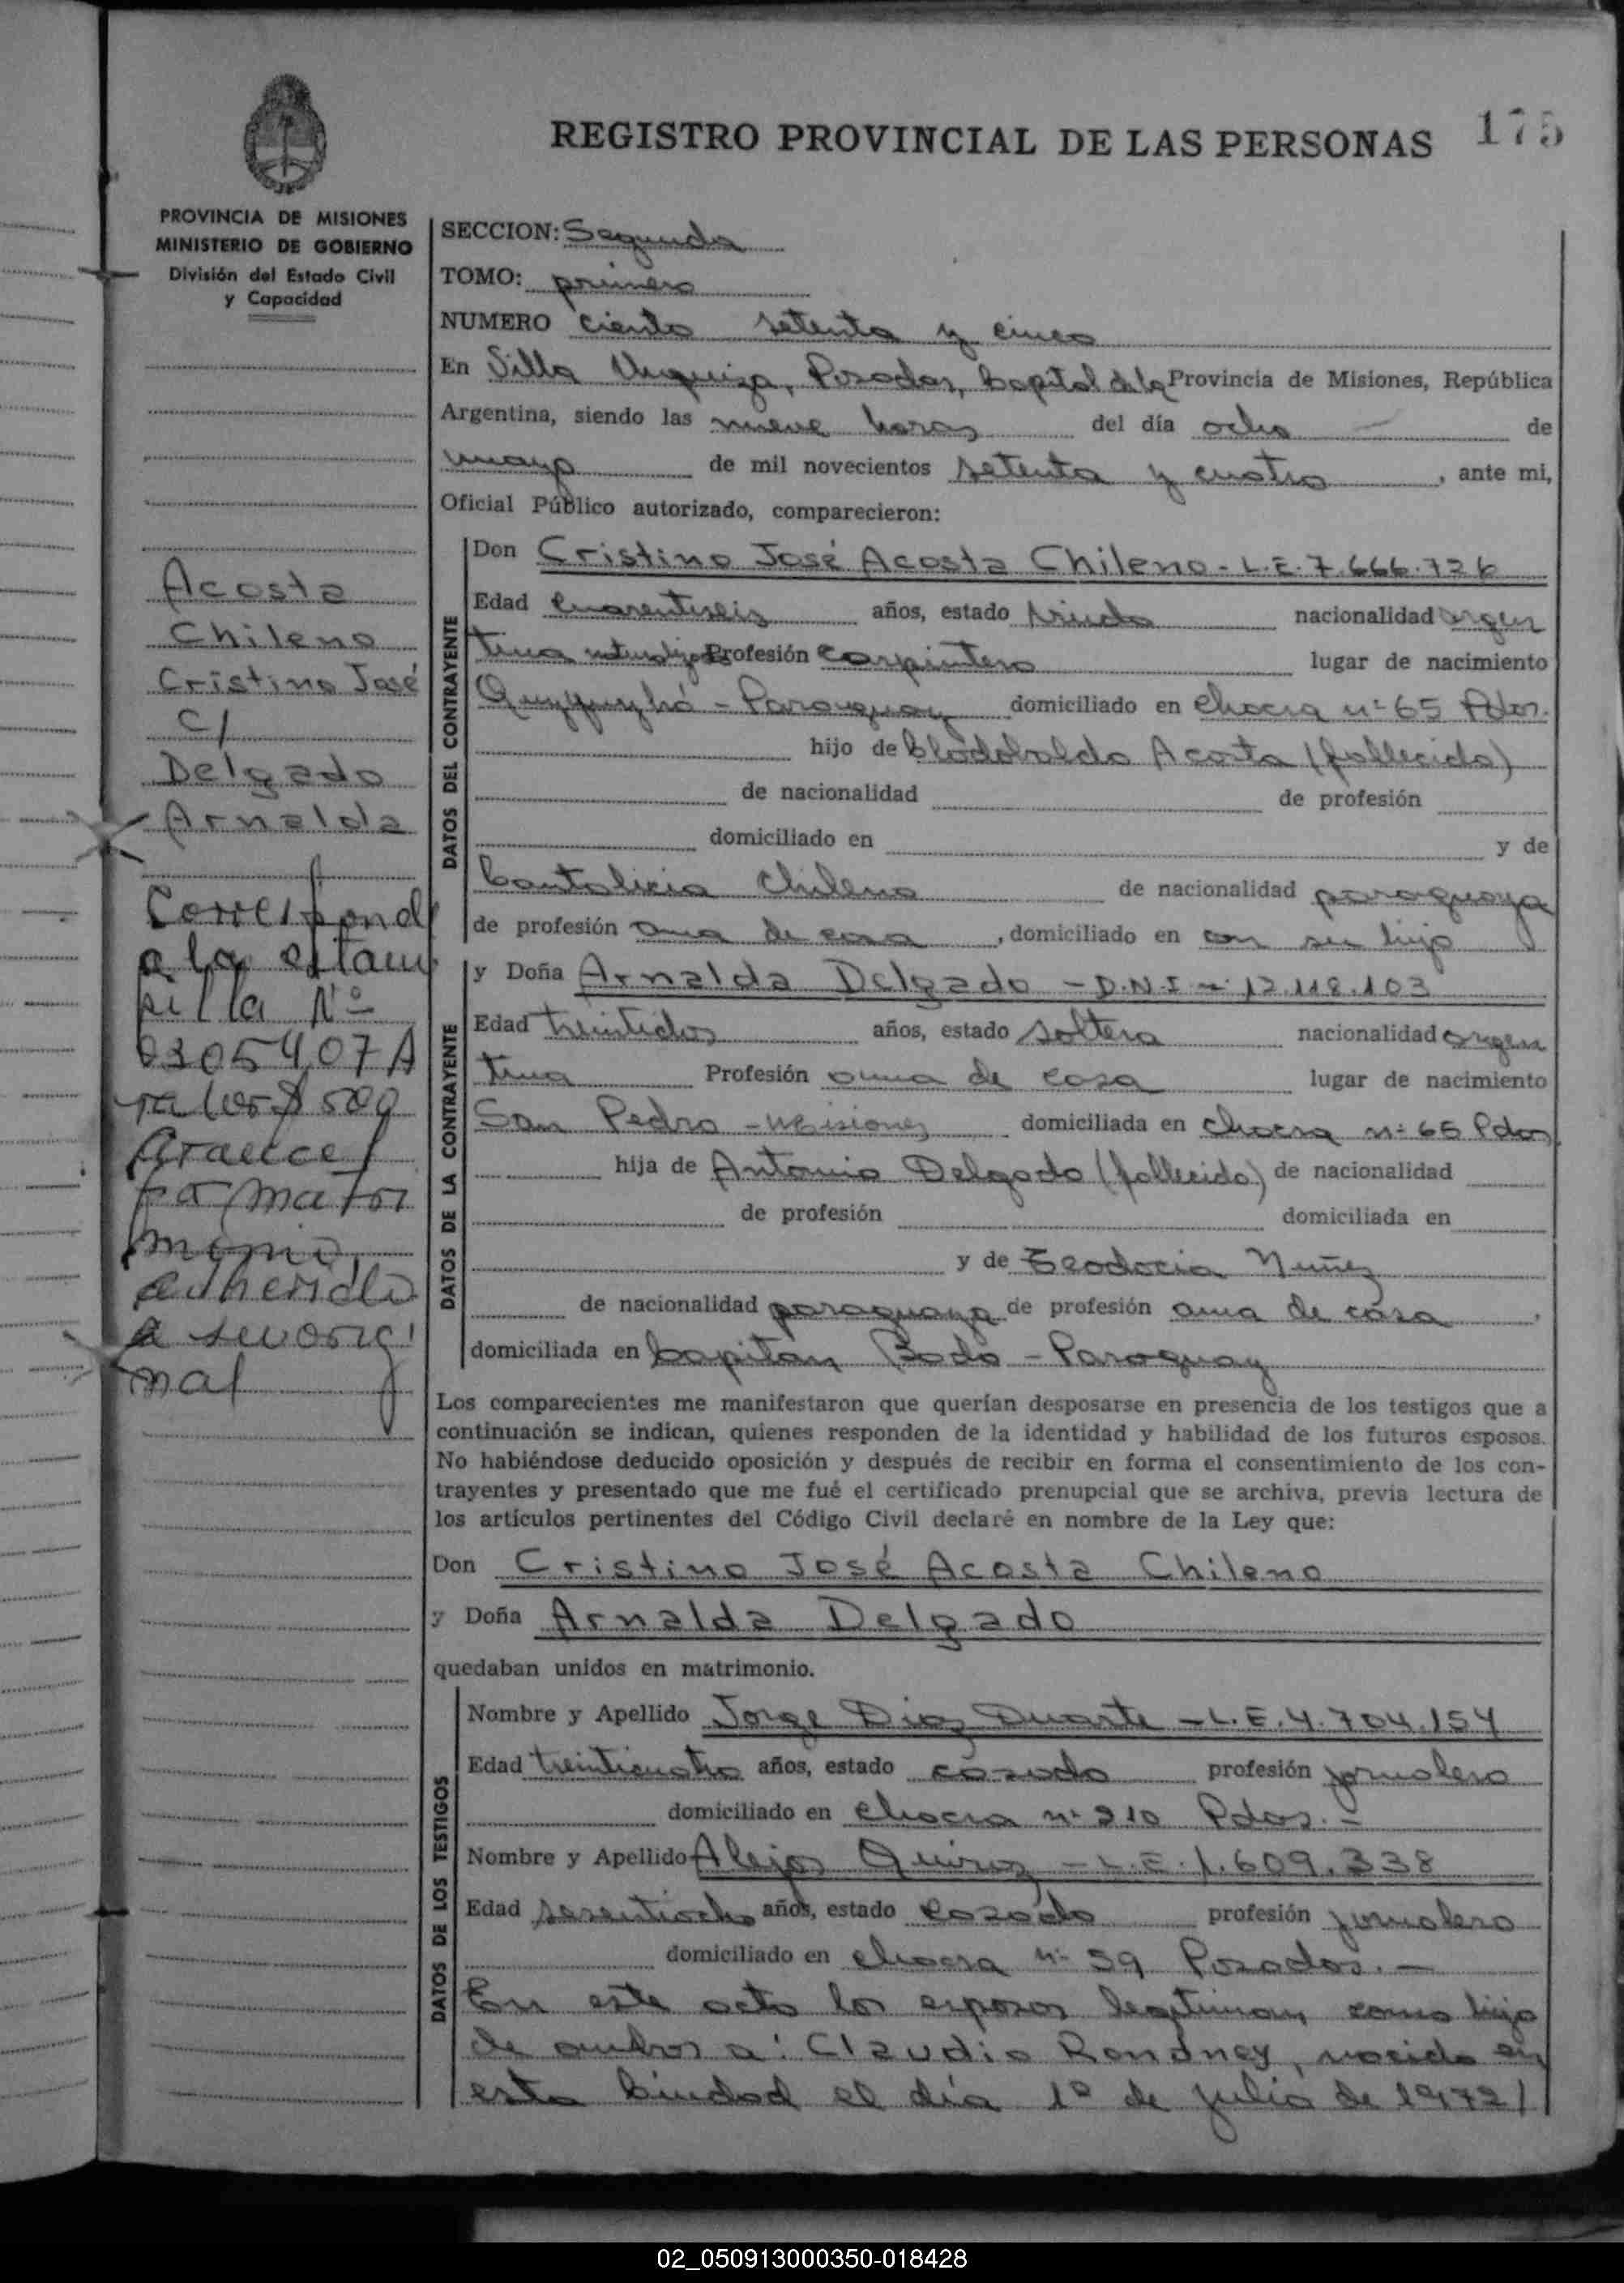 175
REGISTRO PROVINCIAL DE LAS PERSONAS
PROVINCIA DE MISIONES
MINISTERIO DE GOBIERNO
División del Estado Civil
y Capacidad
Acosta
Chileno
Cristino José
c/
Delgado
Arnalda
Correspond
a la estam
pilla Nº
03054,07A
valor $ 500
arancel
por matri
monio,
adherida
a su origi
nal
SECCION: Segunda
TOMO: primero
NUMERO ciento setenta y cinco
En Villa Urquiza, Posadas, Capital de la Provincia de Misiones, República
Argentina, siendo las nueve horas del día ocho de
mayo de mil novecientos setenta y cuatro, ante mi,
Oficial Público autorizado, comparecieron:
DATOS DEL CONTRAYENTE
Don Cristino José Acosta Chileno - L.E. 7.666.726
Edad cuarentiseis años, estado viudo nacionalidad argen
tina naturalizado Profesión carpintero lugar de nacimiento
Quyquyhó - Paraguay domiciliado en chacra nº 65 Pdas.
hijo de Clodobaldo Acosta (fallecido)
de nacionalidad de profesión
domiciliado en y de
Cantalicia Chileno de nacionalidad paraguaya
de profesión ama de casa, domiciliado en con su hijo
DATOS DE LA CONTRAYENTE
y Doña Arnalda Delgado - D.N.I. nº 12.118.103
Edad treintidos años, estado soltera nacionalidad argen
tina Profesión ama de casa lugar de nacimiento
San Pedro - Misiones domiciliada en chacra nº 65 Pdas
hija de Antonio Delgado (fallecido) de nacionalidad
de profesión domiciliada en
y de Teodocia Nuñez
de nacionalidad paraguaya de profesión ama de casa,
domiciliada en Capitan Bado - Paraguay
Los comparecientes me manifestaron que querían desposarse en presencia de los testigos que a
continuación se indican, quienes responden de la identidad y habilidad de los futuros esposos.
No habiéndose deducido oposición y después de recibir en forma el consentimiento de los con-
trayentes y presentado que me fué el certificado prenupcial que se archiva, previa lectura de
los artículos pertinentes del Código Civil declaré en nombre de la Ley que:
Don Cristino José Acosta Chileno
y Doña Arnalda Delgado
quedaban unidos en matrimonio.
DATOS DE LOS TESTIGOS
Nombre y Apellido Jorge Diaz Duarte - L.E. 4.704.154
Edad treinticuatro años, estado casado profesión jornalero
domiciliado en chacra nº 210 Pdas. -
Nombre y Apellido Alejos Quiroz - L.E. 1.609.338
Edad sesentiocho años, estado casado profesión jornalero
domiciliado en chacra nº 59 Posadas. -
En este acto los esposos legitiman como hijo
de ambos a: Claudio Rondney, nacido en
esta Ciudad el día 1º de julio de 1972/
02_050913000350-018428